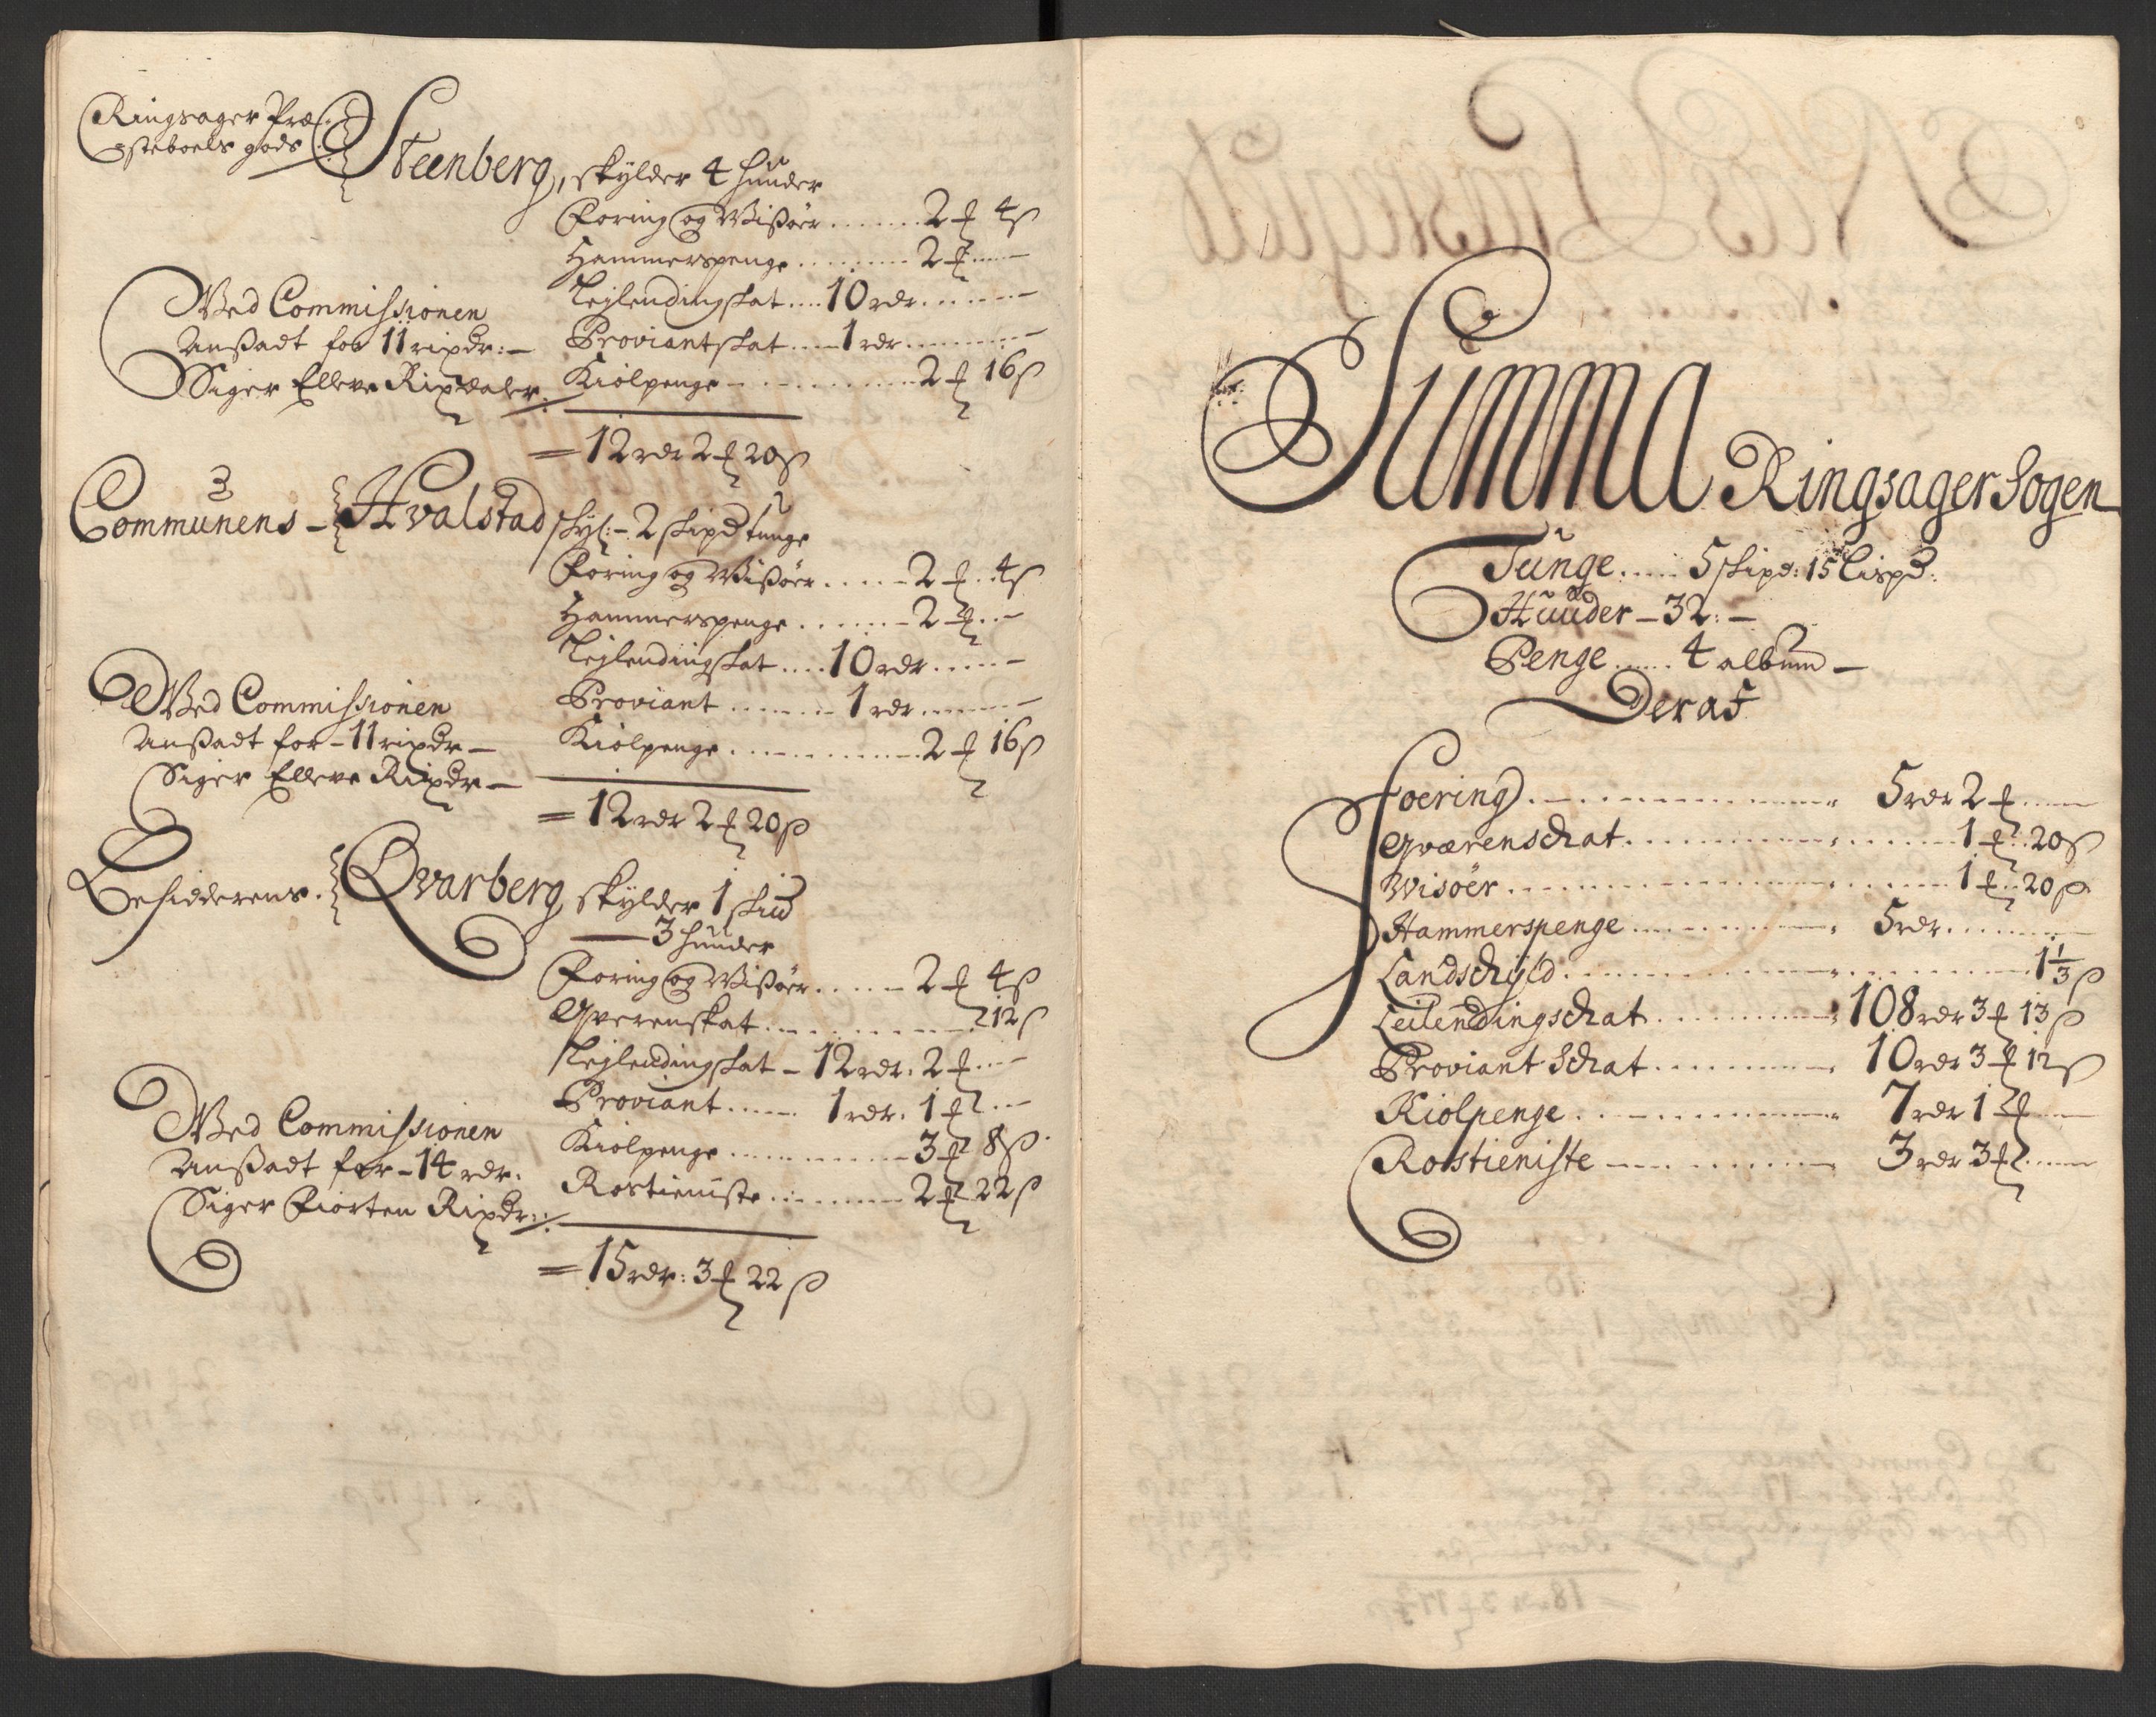 Ringsager Præ-
steboels gods
Steenberg, skylder 4 huuder
Foring og Wisøer ....... 2 ƒ 4 s
Hammerspenge ......... 2 ƒ ....
Lejlendingskat .... 10 rdr. ......
Proviantskat .... 1 rdr .......
Kiölpenge ........... 2 ƒ 16 s
Wed Commissionen
Ansadt for 11 rixdr: –
Siger Elleve Rixdaler
= 12 rdr 2 ƒ 20 s
Communens – Hvalstad skyl: – 2 skipd tunge
Foring og Wisøer ..... 2 ƒ .. 4 s
Hammerspenge ...... – 2 ƒ ...
Lejlendingskat .... 10 rdr .....
Proviant ....... 1 rdr .......
Kiölpenge ............ 2 ƒ 16 s
Wed Commissionen
Ansadt for – 11 rixdr –
Siger Elleve Rixdr –
= 12 rdr 2 ƒ 20 s
Besidderens. Qvarberg skylder 1 skind
3 huuder
Foring og Wisøer ..... 2 ƒ 4 s
Qverenskat ........... 12 s
Lejlendingskat – 12 rdr. 2 ƒ ...
Proviant ..... 1 rdr. 1 ƒ ...
Kiölpenge .......... 3 ƒ 8 s
Rostieniste ......... 2 ƒ 22 s
Wed Commissionen
Ansadt for – 14 rdr.
Siger Fiorten Rixdr:
= 15 rdr: 3 ƒ 22 s
Summa Ringsager Sogen
Tunge ..... 5 skipd: 15 Lispd:
Huuder – 32: –
Penge ..... 4 album –
Deraf
Foering ............ 5 rdr 2 ƒ ....
Qværenschat ............ 1 ƒ .. 20 s
Wisöer ............ 1 ƒ .. 20 s
Hammerspenge ......... 5 rdr. .......
Landschyld ............ 1 1/3 s
Leilendingschat ......... 108 rdr 3 ƒ 13 s
Proviant Schat ......... 10 rdr 3 ƒ 12 s
Kiolpenge ............ 7 rdr 1 ƒ ....
Rostieniste ........... 3 rdr 3 ƒ ....